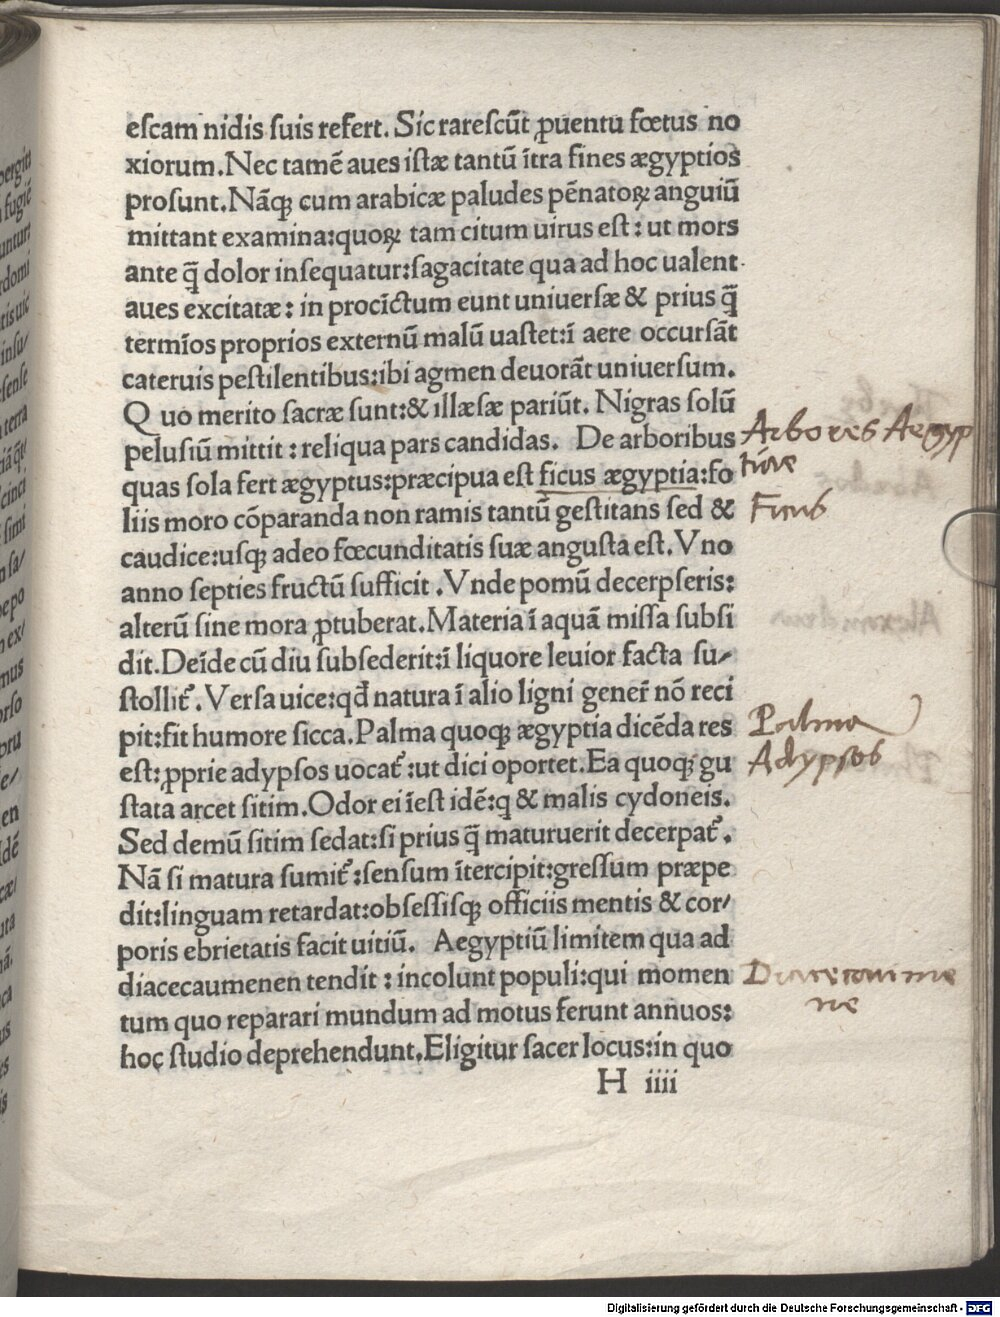 eſcam nidis ſuis refert. Sic rareſcũt ꝓuentu fœtus no
xiorum. Nec tamẽ aues iſtæ tantũ ĩtra fines ægyptios
proſunt. Nãqꝫ cum arabicæ paludes pẽnatoꝝ anguiũ
mittant examina: quoꝝ tam citum uirus eſt: ut mors
ante q̃ dolor inſequatur: ſagacitate qua ad hoc ualent
aues excitatæ: in procĩctum eunt uniuerſæ & prius q̃
termĩos proprios externũ malũ uaſtet: ĩ aere occurſãt
cateruis peſtilentibus: ibi agmen deuorãt uniuerſum.
Quo merito ſacræ ſunt: & illæſæ pariũt. Nigras ſolũ
peluſiũ mittit: reliqua pars candidas. De arboribus
Arbores Aegyp
tiae
quas ſola fert ægyptus: præcipua eſt ficus ægyptia: fo
liis moro cõparanda non ramis tantũ geſtitans ſed &
Ficus
caudice: uſqꝫ adeo fœcunditatis ſuæ anguſta eſt. Vno
anno ſepties fructũ ſufficit. Vnde pomũ decerpſeris:
alterũ ſine mora ꝓtuberat. Materia ĩ aquã miſſa ſubſi
dit. Deĩde cũ diu ſubſederit: ĩ liquore leuior facta ſu⸗
ſtollit᷑. Verſa uice: qd̃ natura ĩ alio ligni generĩ nõ reci
pit: fit humore ſicca. Palma quoqꝫ ægyptia dicẽda res
Palma
eſt: ꝓprie adypſos uocat᷑: ut dici oportet. Ea quoqꝫ gu
Adypsos
ſtata arcet ſitim. Odor ei ĩeſt idẽ: q̃ & malis cydoneis.
Sed demũ ſitim ſedat: ſi prius q̃ maturuerit decerpat᷑.
Nã ſi matura ſumit᷑: ſenſum ĩtercipit: greſſum præpe
dit: linguam retardat: obſeſſiſqꝫ officiis mentis & cor⸗
poris ebrietatis facit uitiũ. Aegyptiũ limitem qua ad
diacecaumenen tendit: incolunt populi: qui momen
tum quo reparari mundum ad motus ferunt annuos:
hoc ſtudio deprehendunt. Eligitur ſacer locus: in quo
H iiii
Digitalisierung gefördert durch die Deutsche Forschungsgemeinschaft - DFG